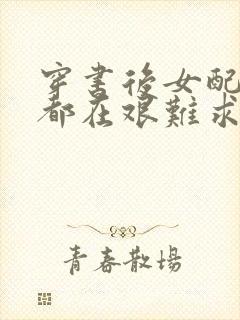 穿書後女配
都在艰難求
青春散場